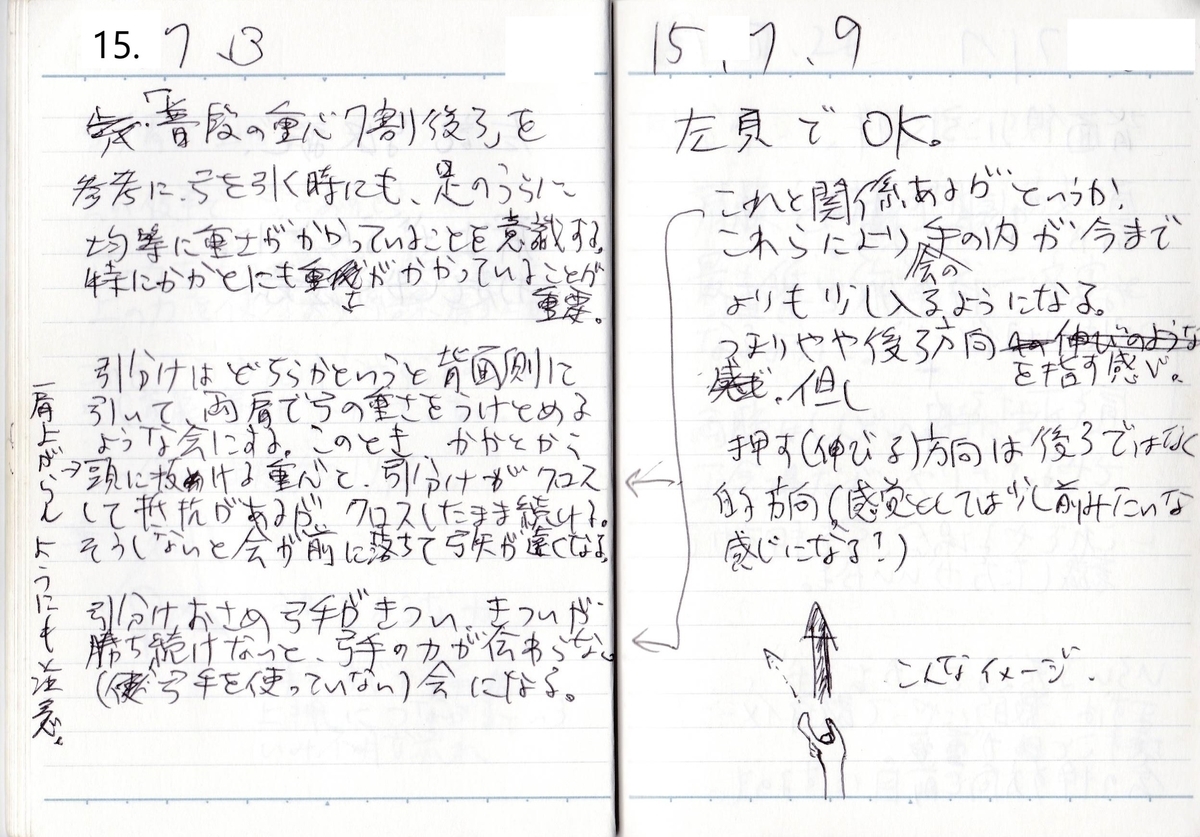 15. 7.3
「普段の重心7割後ろ」を
参考に、弓を引く時にも、足のうらに
均等に重さがかかっていることを意識する。
特にかかとにも重さがかかっていることが
重要。
引分けはどちらかというと背面側に
引いて、両肩で弓の重さをうけとめる
ような会にする。このとき、かかとから
頭に抜ける重心と、引分けがクロス
して抵抗があるが、クロスしたまま続ける。
そうしないと会が前に落ちて弓矢が遠くなる。
肩上がらんようにも注意。
引分けおさめ弓手がきつい。きついが
勝ち続けないと、弓手の力が伝わらない
(弓手を使っていない)会になる。
15.7.9
左頁でOK。
これと関係あるがというか!
これらにより手の内が今まで
会の
よりも少し入るようになる。
つまりやや後ろ方向 伸びのような
を指す感じ。
感じ。但し
押す(伸びる)方向は後ろではなく
的方向。(感覚としては少し前みたいな
感じになる?)
こんなイメージ.